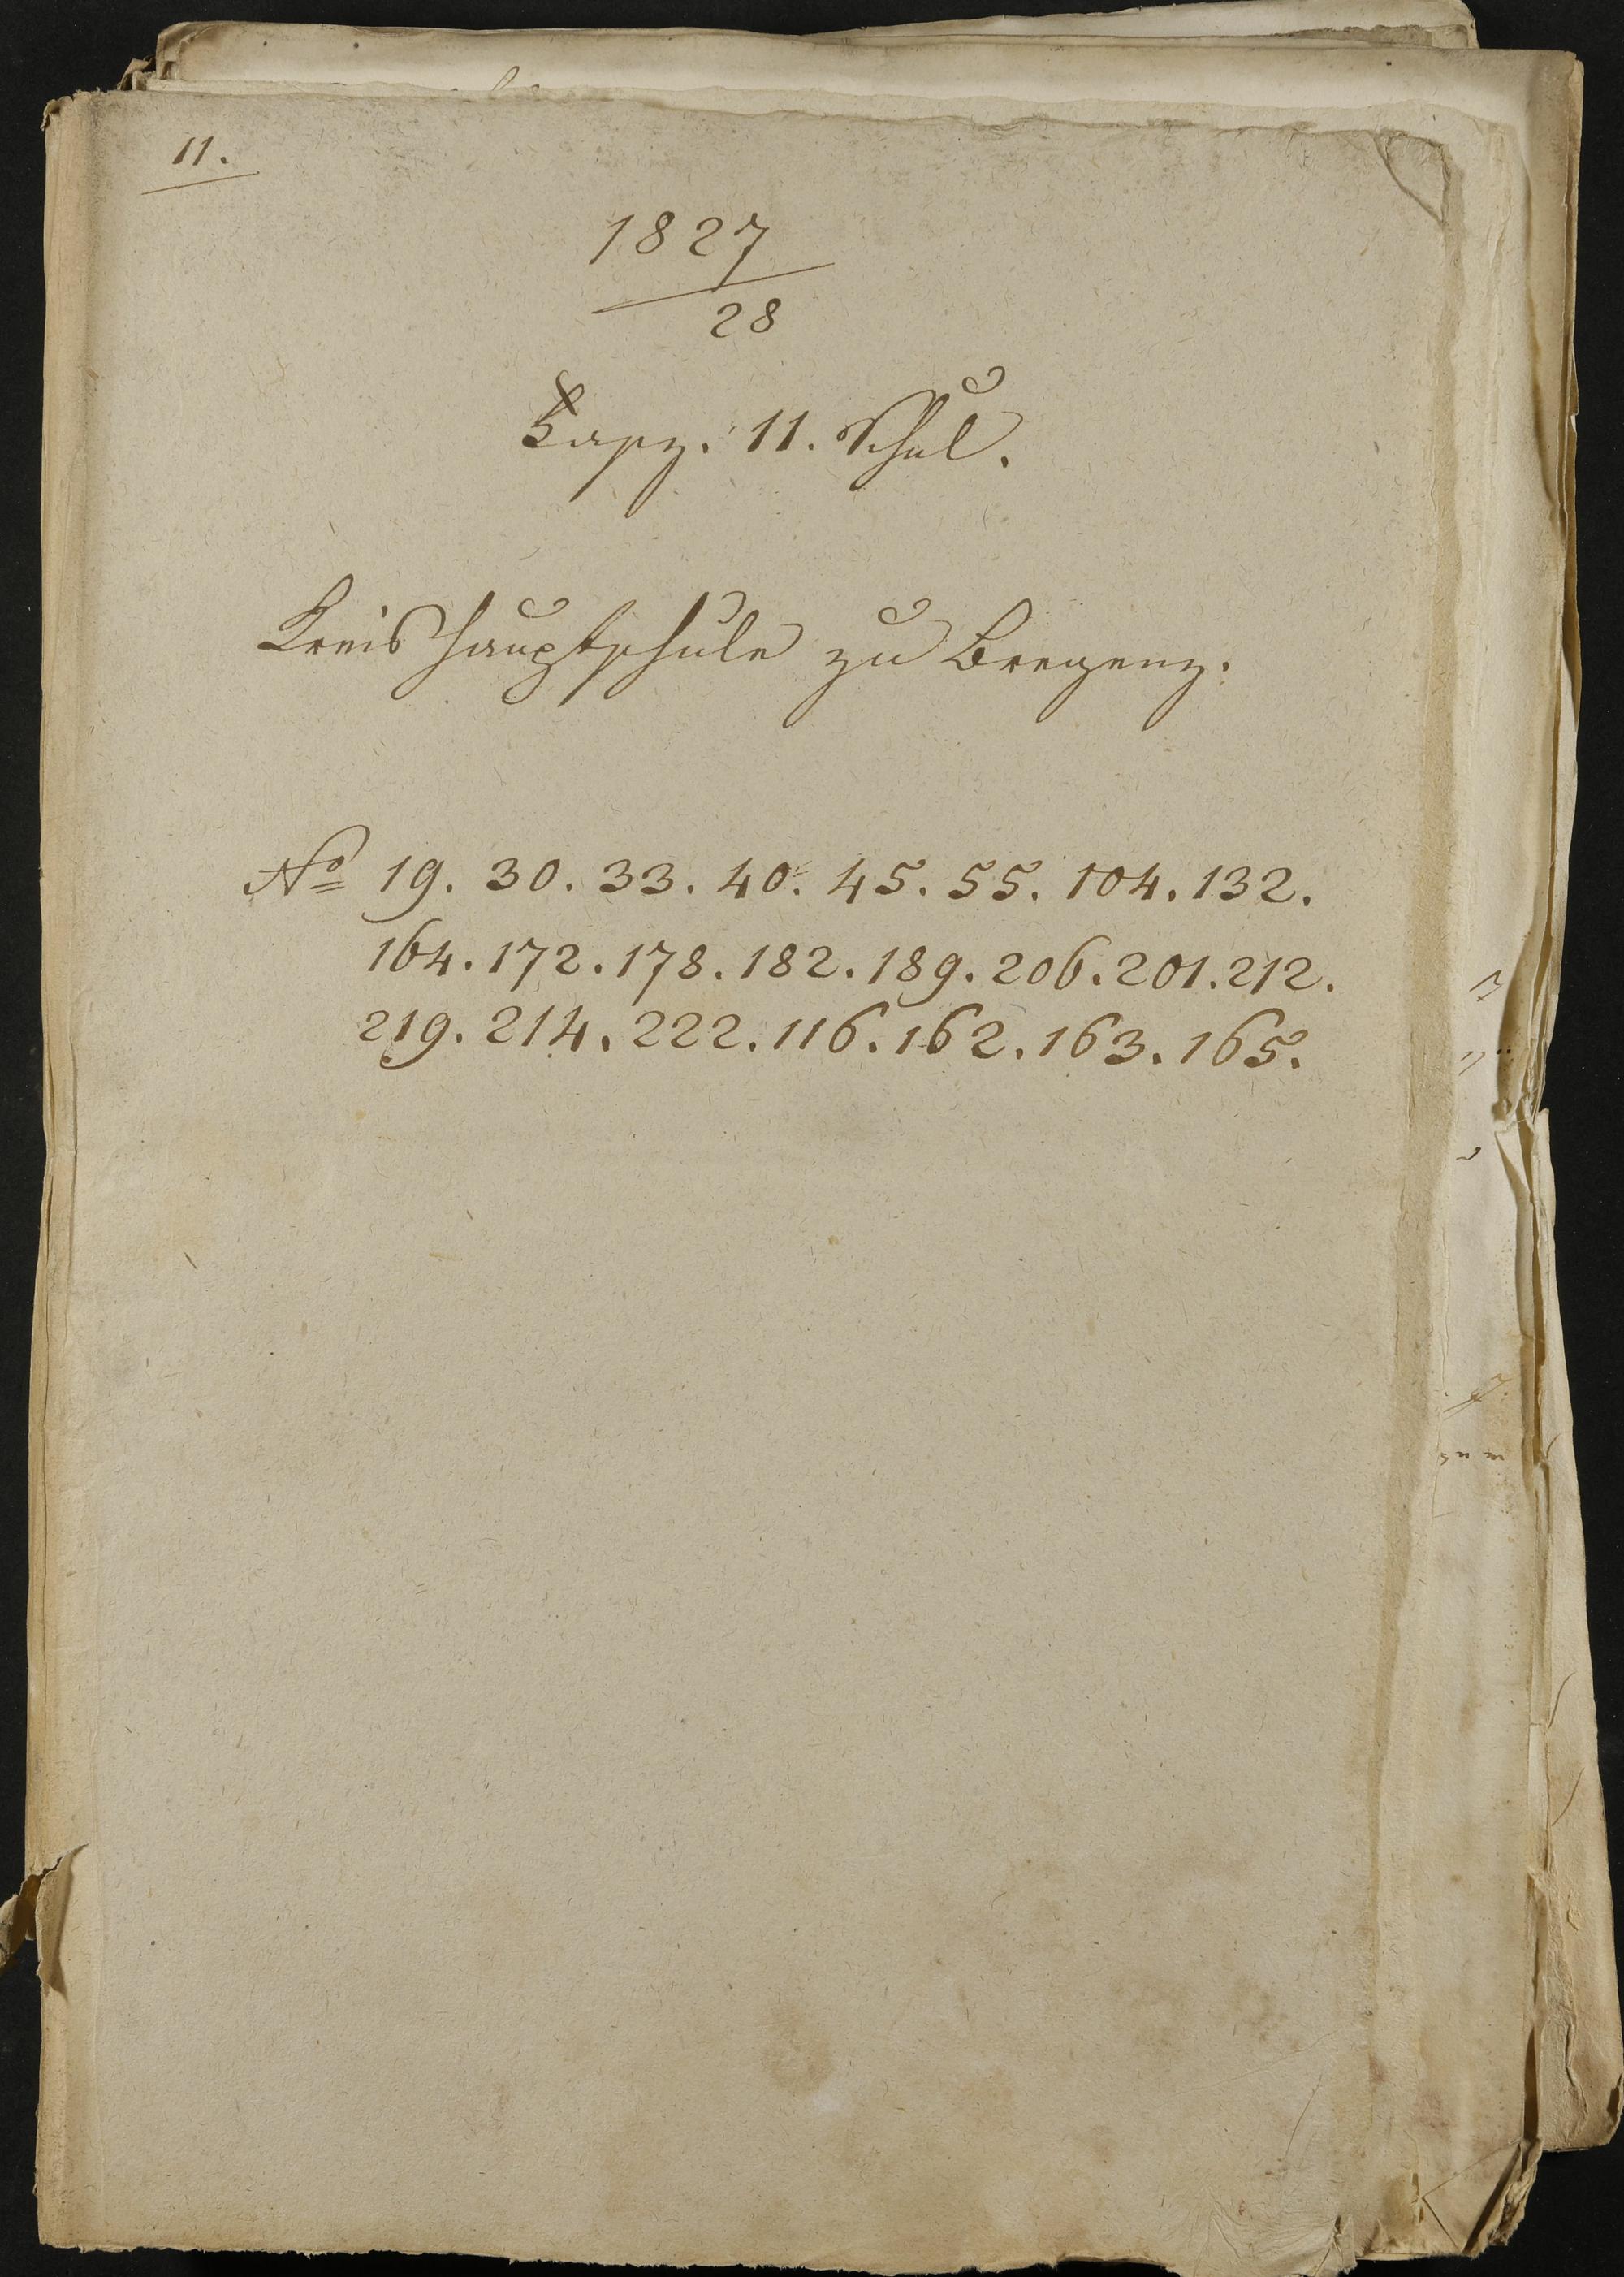 11.
1827
28
Fasz. 11. Schul.
Kreishauptschule zu Bregenz.
No 19. 30. 33. 40. 45. 55. 104. 132.
164. 172. 178. 182. 189. 206. 201. 212.
219. 214. 222. 116. 162. 163. 165.